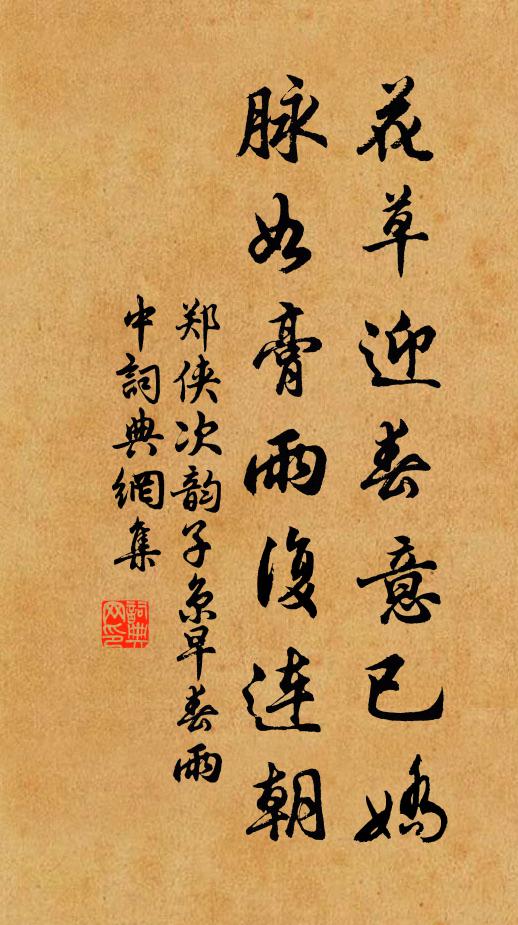 花草迎春意已嬌
脉如膏雨復連朝
郑侠次韵子京早春雨
中詞典網集
詞典网印